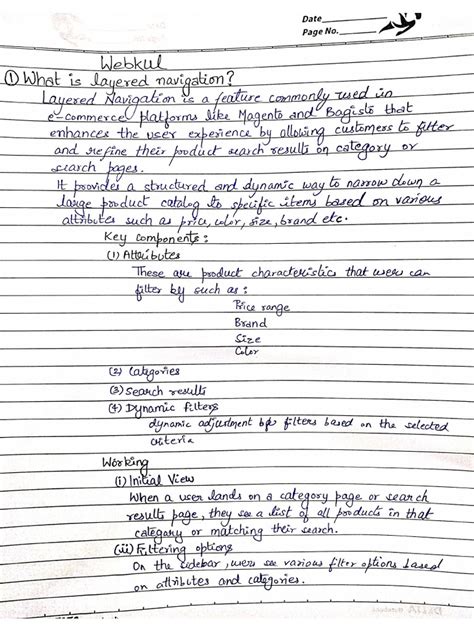 Date
Page No.
Webkul
① What is layered navigation?
Layered Navigation is a feature commonly used in
e-commerce platforms like Magento and Bagisto that
enhances the user experience by allowing customers to filter
and refine their product search results on category or
search pages.
It provides a structured and dynamic way to narrow down a
large product catalog to specific items based on various
attributes such as price, color, size, brand etc.
Key components:
(1) Attributes
These are product characteristics that users can
filter by such as:
Price range
Brand
Size
Color
(2) Categories
(3) Search results
(4) Dynamic filters
dynamic adjustment of filters based on the selected
criteria
Working
(i) Initial View
When a user lands on a category page or search
results page, they see a list of all products in that
category or matching their search.
(ii) Filtering options
On the sidebar, users see various filter options based
on attributes and categories.